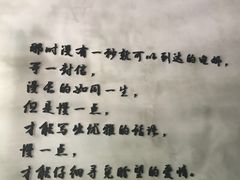 那时没有一秒就可以到达的电邮，
等一封信，
漫长的如同一生，
但是慢一点，
才能写出优雅的话语，
慢一点，
才能仔细寻觅盼望的爱情。